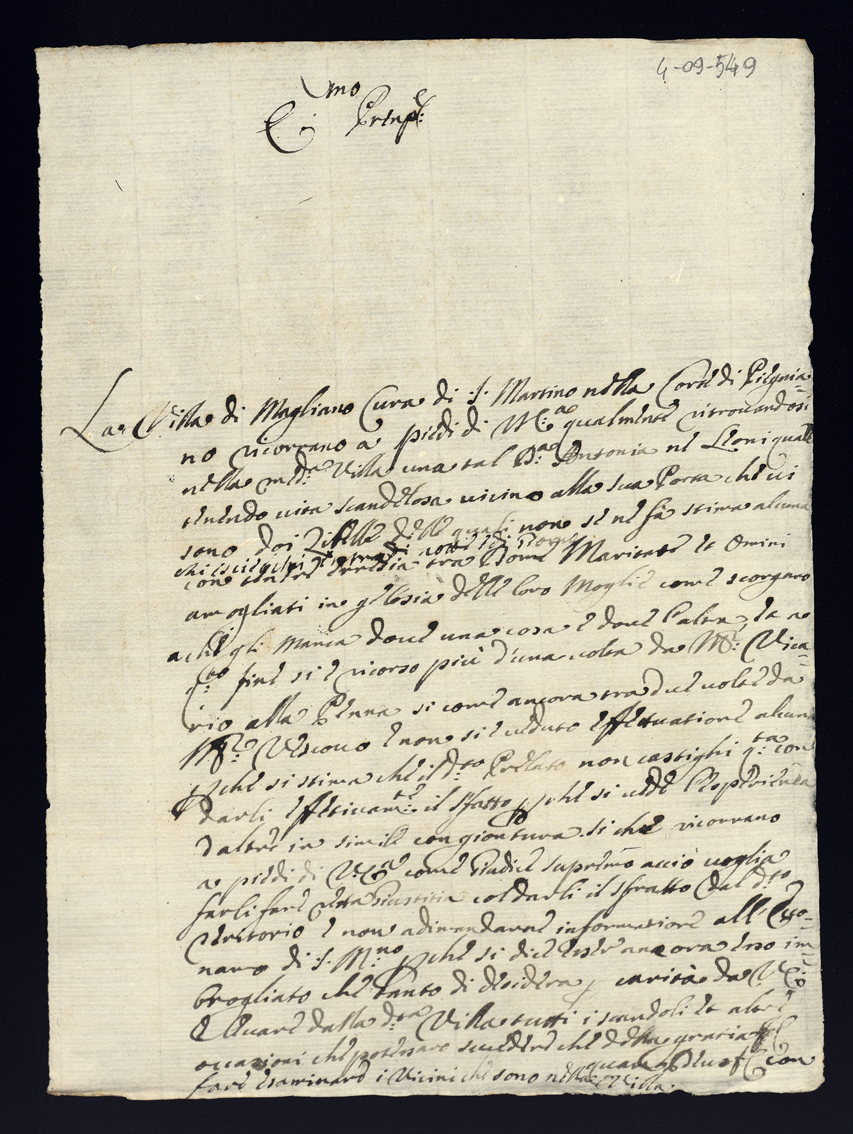 4-09-549
Emo Prinpe:
La Villa di Magliano Cura di S. Martino nella Corte di Piegnia=
no ricorrano a piedi di qualmente ritrouandosi
nella med:a Villa una tal D:a Antonia ne Leoni quale
tenendo vita scandelosa vicino alla sua Porta che vi
sono doi delle quali non se ne fà stima alcuna
con tra Done Maritate et Omini
amogliati in gelosia delle loro Moglie come scorgano
a che gli manca doue una cosa e doue l'altra et a
q:to fine si è ricorso più d'una volta da M:r Vica=
rio alla Penna si come ancora tra due volte da
M:r Vescouo e non si è ueduto effettuatione alcuna
che si stima che il d:to Prelato non castighi q:ta con
darli effetivam:te il sfatto che si uede l'esperienza
d'altre in simile congiontura si che ricorrano
a piedi di V: E: come Giudice supremo acciò voglia
farli fare retta giustitia col darli il sfratto dal d:to
Territorio e non adimandarne informatione all'
naro di S. M:no che si dice esser ancora esso im=
brogliato che tanto di desidera carità da V: E:
e leuare dalla d:ta Villa tutti i scandoli et altre
occasioni che potessaro succedere che della gratia
fare esaminare i Vicini che sono nella Villa.